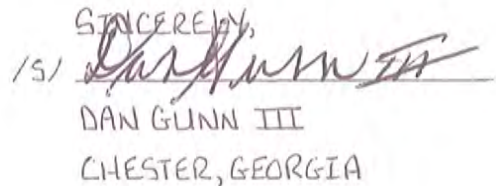 SINCERELY,
/S/ Dan Gunn III
DAN GUNN III
CHESTER, GEORGIA